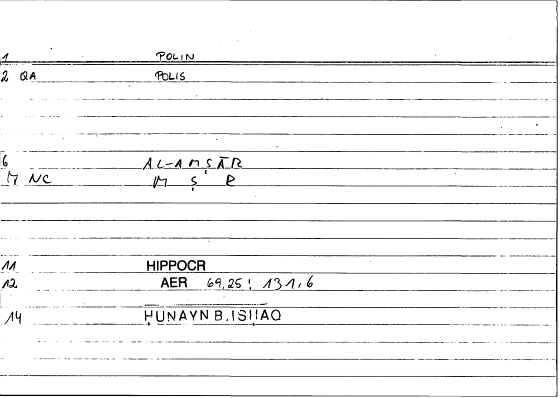 1 POLIN
2 QA POLIS
6 AL-AMṢĀR
7 NC M Ṣ R
11 HIPPOCR
12 AER 69,25; 131,6
14 ḤUNAYN B. ISḤAQ